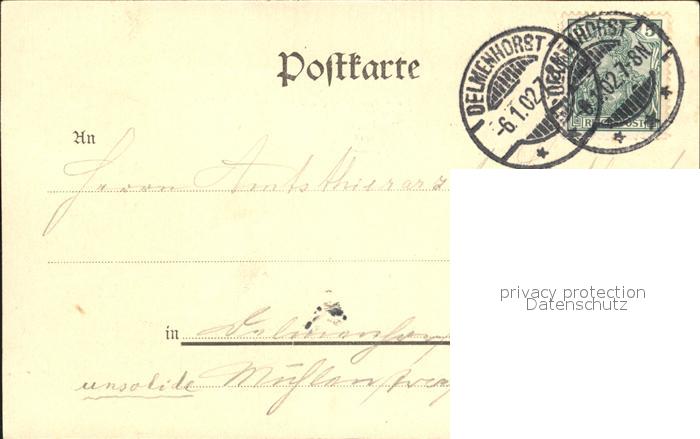 Postkarte
DELMENHORST
-6.1.02.7
DELMENHORST
-6.1.02.7-8N
5
REICHSPOST
An
Herrn Amtsthierarz
privacy protection
Datenschutz
in Delmenhorst
unsolide Mühlenstraße